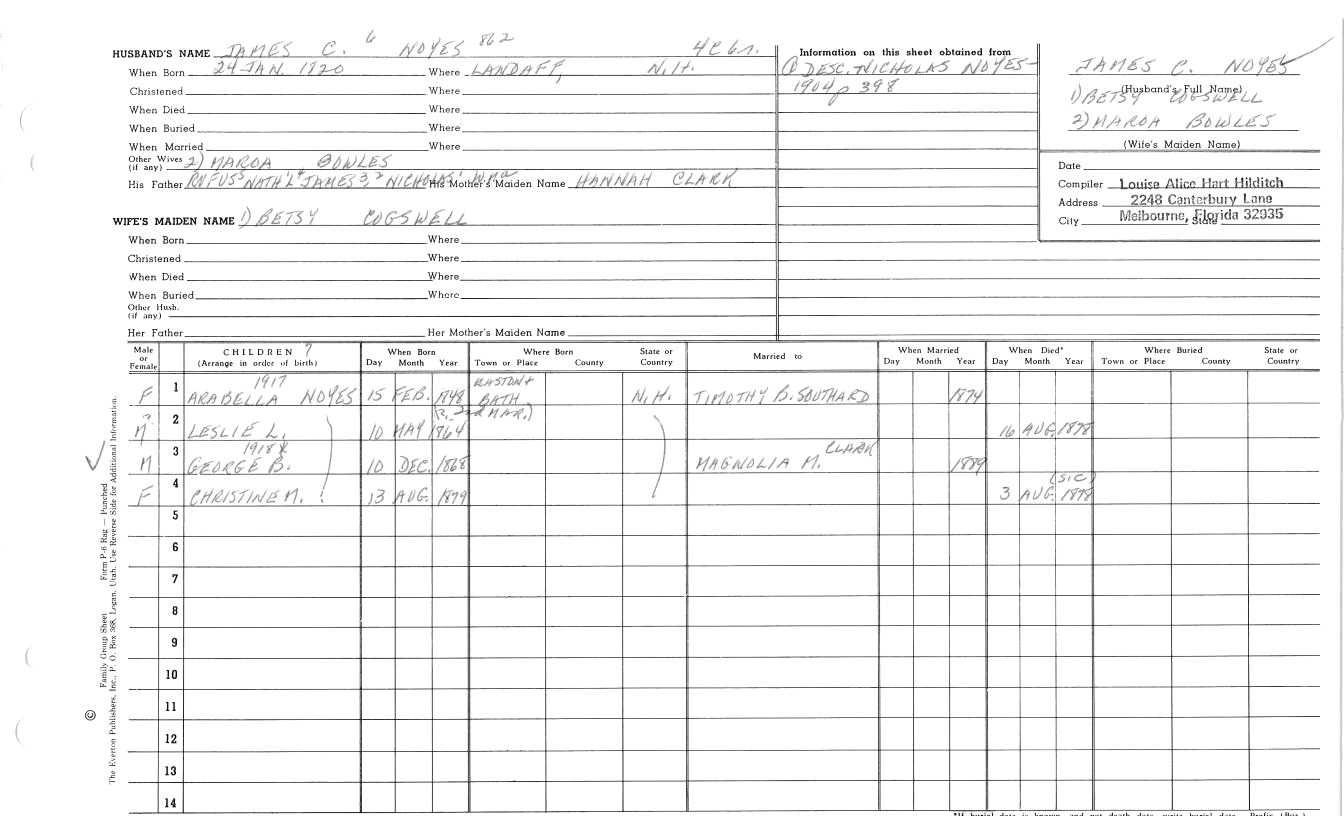 HUSBAND'S NAME JAMES C. 6 NOYES 862 4 Ch.
When Born 24 JAN. 1820 Where LANDAFF, N.H.
Christened Where
When Died Where
When Buried Where
When Married Where
Other Wives (if any) 2) MAROA BOWLES
His Father RUFUS5 NATH'L4 JAMES3, 2 NICHOLAS1 Wm2 His Mother's Maiden Name HANNAH CLARK
WIFE'S MAIDEN NAME 1) BETSY COGSWELL
When Born Where
Christened Where
When Died Where
When Buried Where
Other Husb. (if any)
Her Father Her Mother's Maiden Name
Information on this sheet obtained from
DESC. NICHOLAS NOYES-
1904 p 398
JAMES C. NOYES
(Husband's Full Name)
1) BETSY COGSWELL
2) MAROA BOWLES
(Wife's Maiden Name)
Date
Compiler Louise Alice Hart Hilditch
Address 2248 Canterbury Lane
City Melbourne, Florida 32935 State
Male or Female CHILDREN 7 (Arrange in order of birth) When Born Day Month Year Where Born Town or Place County State or Country Married to When Married Day Month Year When Died* Day Month Year Where Buried Town or Place County State or Country
1917 EASTON &
F 1 ARABELLA NOYES 15 FEB. 1848 BATH N.H. TIMOTHY B. SOUTHARD 1874
(By 2nd MAR.)
M 2 LESLIE L. 10 MAY 1864 16 AUG. 1878
1918 CLARK
M 3 GEORGE B. 10 DEC. 1868 MAGNOLIA M. 1889
(SIC)
F 4 CHRISTINE M. 13 AUG. 1879 3 AUG. 1878
5
6
7
8
9
10
11
12
13
14
© Family Group Sheet Form P-6 Rag — Punched
The Everton Publishers, Inc., P. O. Box 368, Logan, Utah. Use Reverse Side for Additional Information.